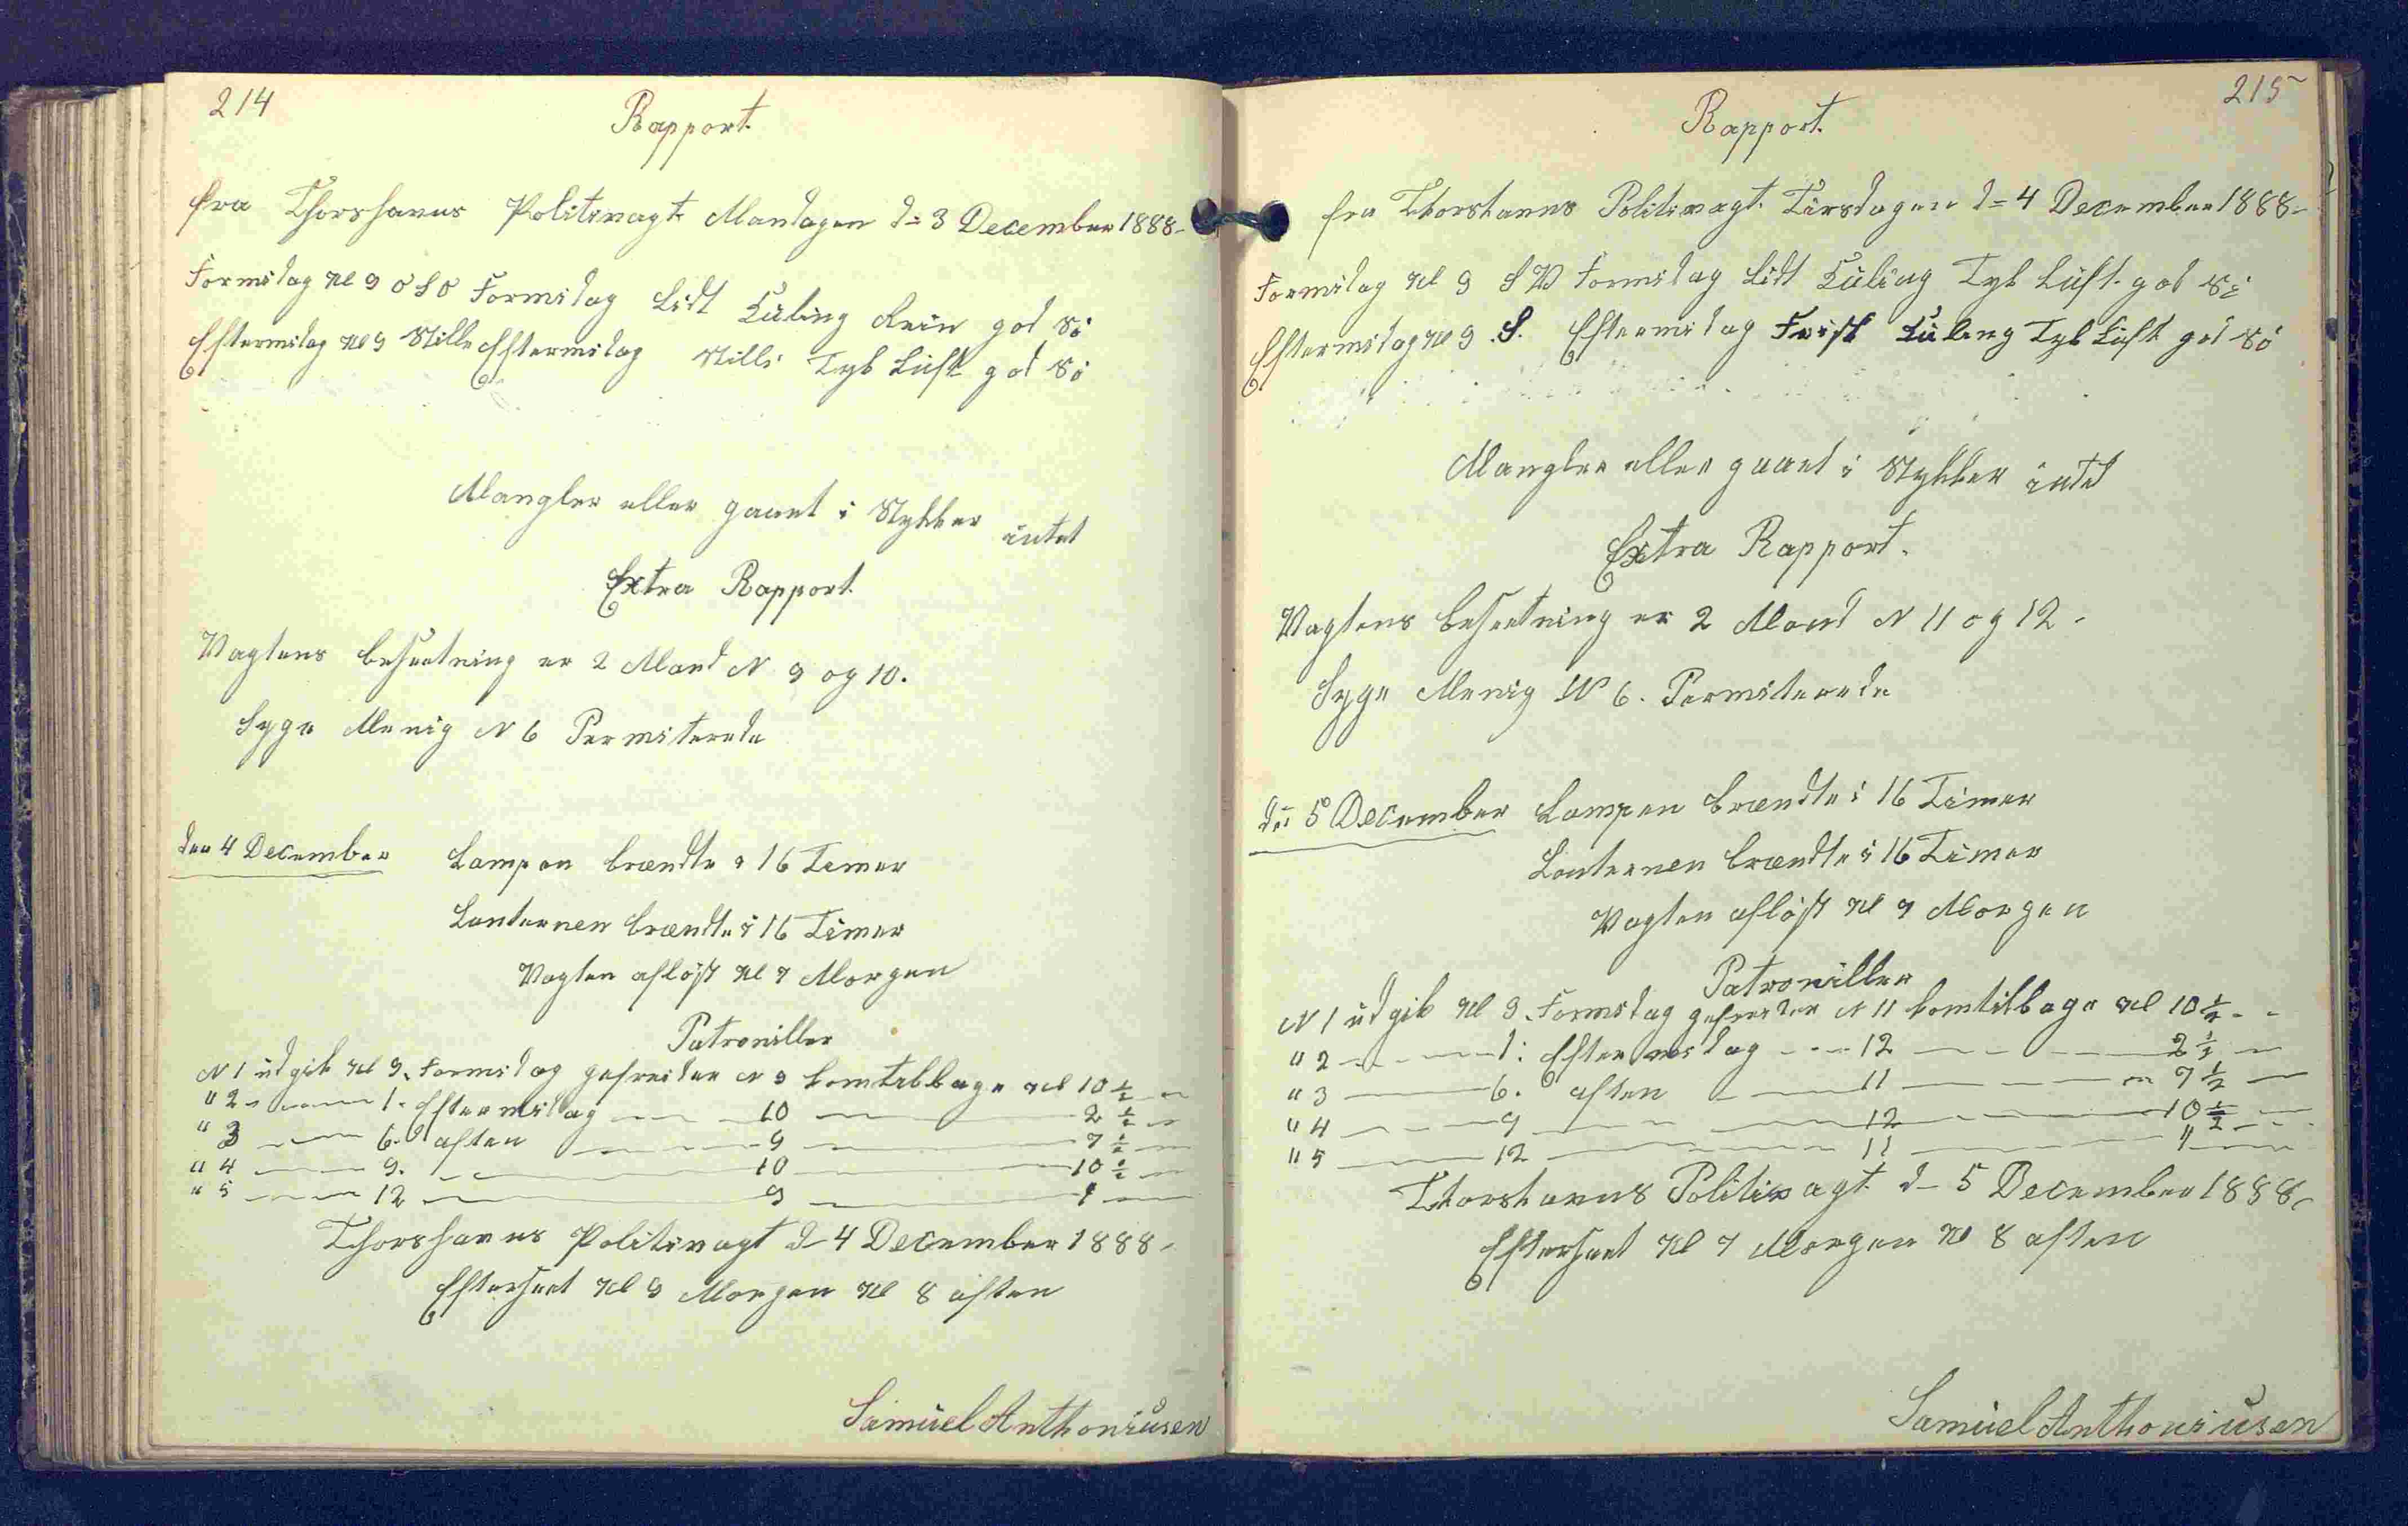 214
Rapport.
fra Thorshavns Politivagt Mandagen d= 3 December 1888-
Formidag Kl 9 O S O Formidag Lidt Kuling Rein god Sö
Eftermidag Kl 9 Stille Eftermidag Stille Tyk Luft god Sö
Mangler eller gaaet i Stykker intet
Extra Rapport.
Vagtens besætning er 2 Mand N 9 og 10.
Syge Menig N 6 Permiterede
den 4 December Lampen brændte i 16 Timer
Lanternen brændte i 16 Timer
Vagten aflöst Kl 9 Morgen
Patroniller
N 1 udgik Kl 9. Formidag gefreider N 9 komtilbage Kl 10 1/2 - -
" 2 - - - - 1. Eftermidag - - 10 - - 2 1/2 - -
" 3 - - - 6. aften - - 9 - - 7 1/2 - -
" 4 - - - 9. - - - 10 - - 10 1/2 - -
" 5 - - - 12 - - - 9 - - 1 - -
Thorshavns Politivagt d- 4 December 1888-
Efterseet Kl 9 Morgen Kl 8 aften
Samuel Anthoniusen
215
Rapport.
fra Thorshavns Politivagt. Tirsdagen d= 4 December 1888-
Formidag Kl 9 S V Formidag Lidt Kuling Tyk Luft god Sö
Eftermidag Kl 9 S. Eftermidag Frisk Kuling Tyk Luft god Sö
Mangler eller gaaet i Stykker intet
Extra Rapport.
Vagtens besætning er 2 Mand N 11 og 12-
Syge Menig N 6. Permiterede
den 5 December Lampen brændte i 16 Timer
Lanternen brændte i 16 Timer
Vagten aflöst Kl 9 Morgen
Patroniller
N 1 udgik Kl 9. Formidag gefreider N 11 komtilbage Kl 10 1/2 - -
" 2 - - - - 1. Eftermidag - - - 12 - - - 2 1/2 -
" 3 - - 6. aften - - 11 - - - 7 1/2 -
" 4 - - - 9 - - - 12 - - - 10 1/2 - -
" 5 - - 12 - - - 11 - - - 1 - -
Thorshavns Politivagt d- 5 December 1888-
Efterseet Kl 9 Morgen Kl 8 aften
Samuel Anthoniusen